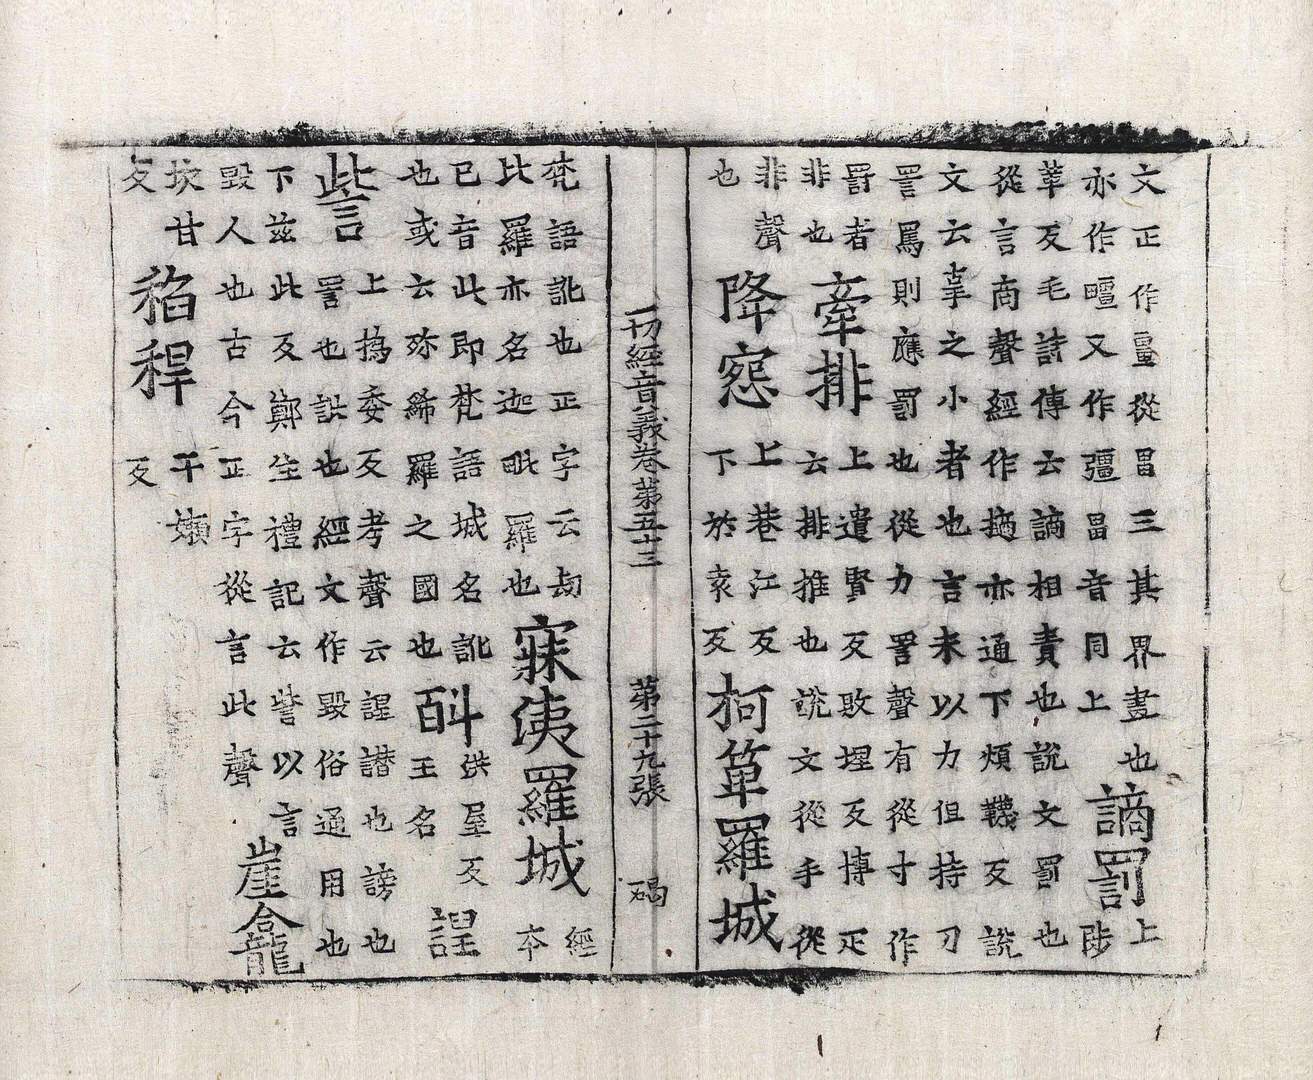 文正作畺從畕三其界畫也
亦作疅又作疆畕音同上
謫罰
上
陟
革反毛詩傳云謫相責也說文罰也
從言啇聲經作擿亦通下煩韈反說
文云辠之小者也言未以力但持刀
詈罵則應罰也從力詈聲有從寸作
罸者
非也
牽排
上遣賢反敗埋反博疋
云排推也說文從手從
非聲
也
降愆
上巷江反
下於袁反
柯箄羅城
一切經音義卷第五十三
第二十九張
碣
梵語訛也正字云劫
比羅亦名迦毗羅也
寐洟羅城
經
本
已音此即梵語城名訛
也或云弥絺羅之國也
烘屋反
王名
訾
上撝委反考聲云譖也謗也
詈也訿也經文作毀俗通用也
下茲此反鄭注禮記云訾以言
毀人也古今正字從言此聲
崖龕
坎甘
反
稻稈
干嬾
反